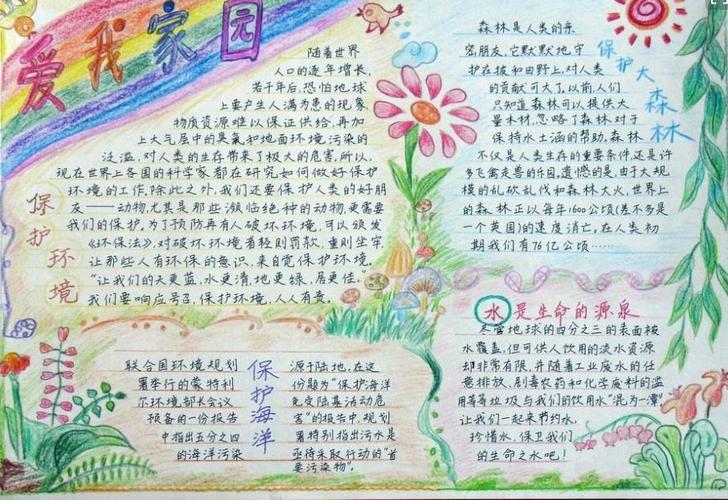 爱我家园
随着世界
人口的逐年增长,
若干年后,恐怕地球
上要产生人满为患的现象,
物质资源难以保证供给,再加
上大气层中的臭氧和地面环境污染的
泛滥,对人类的生存带来了极大的危害,所以,
现在世界上各国的科学家都在研究如何做好保护
环境的工作,除此之外,我们还要保护人类的好朋
友——动物,尤其是那些濒临绝种的动物,更需要
我们的保护,为了预防再有人破坏环境,可以颁发
《环保法》,对破坏环境者轻则罚款,重则坐牢,
让那些人有环保的意识,来自觉保护环境.
“让我们的天更蓝,水更清,地更绿,居更佳.”
我们要响应号召,保护环境,人人有责.
保护环境
森林是人类的亲
密朋友,它默默地守
护在坡和田野上,对人类
的贡献可大了,以前,人们
只知道森林可以提供大
量木材,忽略了森林对于
保持水土涵的帮助,森林
不仅是人类生存的重要条件,还是许
多飞禽走兽的乐园,遗憾的是,由于大规
模的乱砍乱伐和森林大火,世界上
的森林正以每年1600公顷(差不多是
一个英国)的速度消亡,在人类初
期我们有76亿公顷……
保护大森林
联合国环境规划
署举行的蒙特利
尔环境部长会议
预备的一份报告
中指出五分之四
的海洋污染
保护海洋
源于陆地,在这
份题为“保护海洋
免受陆基活动危
害”的报告中,规划
署特别指出污水是
亟待采取行动的“首
要污染物”.
水是生命的源泉
尽管地球的四分之三的表面被
水覆盖,但可供人饮用的淡水资源
却非常有限,并随着工业废水的任
意排放,剧毒农药和化学废料的滥
用等等垃圾与我们的饮用水“混为一潭”
让我们一起来节约水,
珍惜水,保卫我们
的生命之水吧!